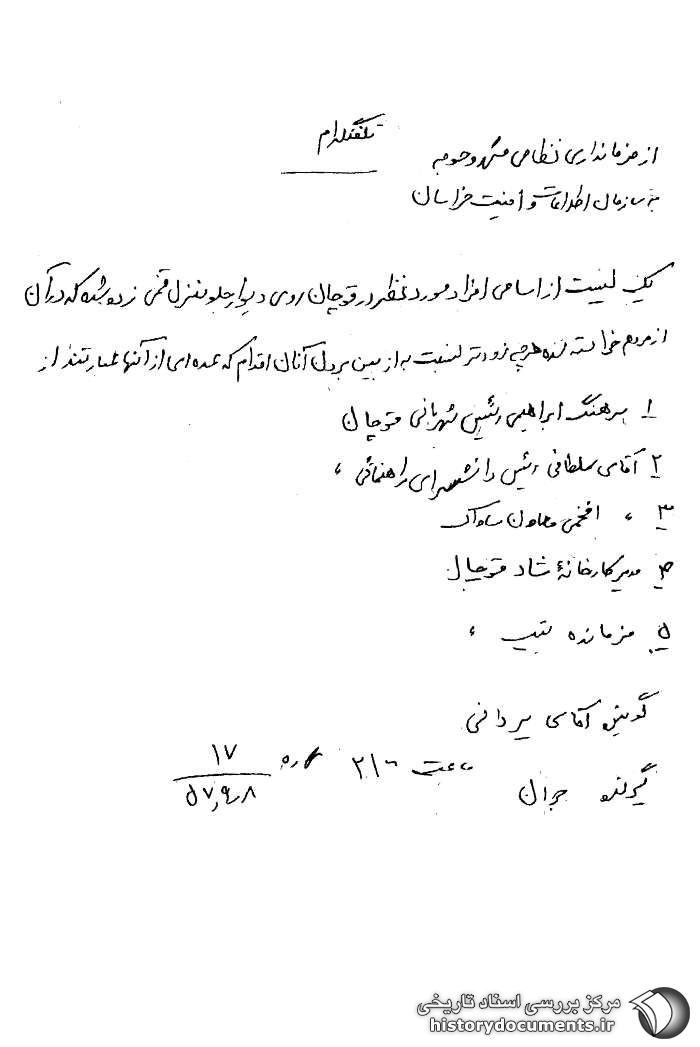 تلفنگرام
از فرمانداری نظامی مشهد و حومه
به سازمان اطلاعات و امنیت خراسان
یک لیست از اسامی افراد مورد نظر در قوچان روی دیوار جلو منزل قمی زده شده که در آن
از مردم خواسته شده هرچه زودتر نسبت به از بین بردن آنان اقدام که عده ای از آنها عبارتند از
۱ سرهنگ ابراهیمی رئیس شهربانی قوچان
۲ آقای سلطانی رئیس دانشسرای راهنمائی ،
۳ ، افخمی معاون ساواک
۴ مدیر کارخانهٔ شاد قوچان
۵ فرمانده تیپ ،
گوینده آقای یزدانی
گیرنده ساعت ۲۱۰۰ شماره ۱۷
۵۷,۹,۸
مرکز بررسی اسناد تاریخی
historydocuments.ir